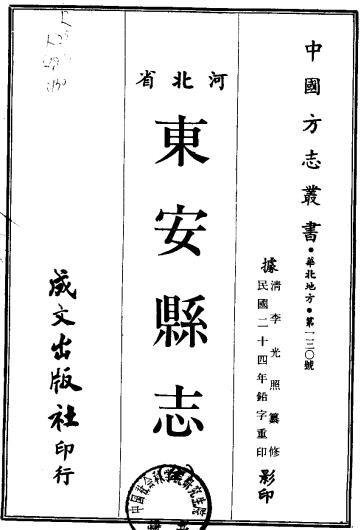 中國方志叢書•華北地方•第一三〇號
據清李光照纂修
民國二十四年鉛字重印影印
河北省
東安縣志
成文出版社印行
中国社会科学院研究生院